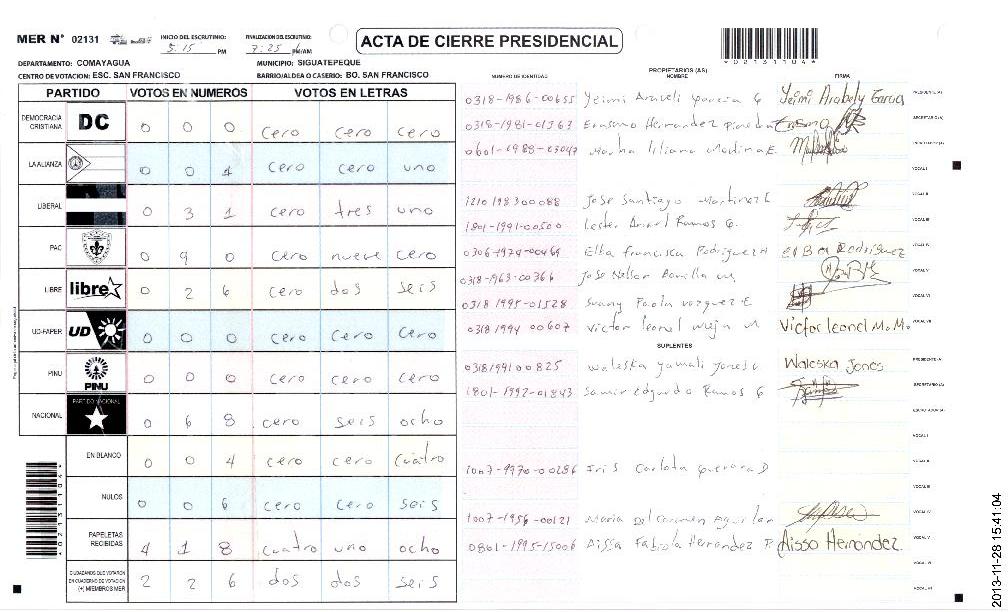 MER N° 02131
INICIO DEL ESCRUTINIO: 5:15 PM
FINALIZACION DEL ESCRUTINIO: 7:25 PM/AM
ACTA DE CIERRE PRESIDENCIAL
*02131104*
DEPARTAMENTO: COMAYAGUA
MUNICIPIO: SIGUATEPEQUE
CENTRO DE VOTACION: ESC. SAN FRANCISCO
BARRIO/ALDEA O CASERIO: BO. SAN FRANCISCO
PARTIDO VOTOS EN NUMEROS VOTOS EN LETRAS
DEMOCRACIA CRISTIANA DC 0 0 0 cero cero cero
LA ALIANZA 0 0 1 cero cero uno
LIBERAL 0 3 1 cero tres uno
PAC 0 9 0 cero nueve cero
LIBRE libre 0 2 6 cero dos seis
UD-FAPER UD 0 0 0 cero cero cero
PINU PINU 0 0 0 cero cero cero
NACIONAL PARTIDO NACIONAL 0 6 8 cero seis ocho
EN BLANCO 0 0 4 cero cero cuatro
NULOS 0 0 6 cero cero seis
PAPELETAS RECIBIDAS 4 1 8 cuatro uno ocho
CIUDADANOS QUE VOTARON EN CUADERNO DE VOTACION (+) MIEMBROS MER 2 2 6 dos dos seis
NUMERO DE IDENTIDAD PROPIETARIOS (AS) NOMBRE FIRMA
0318-1986-00655 Yeimi Araveli Garcia G Yeimi Arabely Garcia PRESIDENTE (A)
0318-1981-01563 Erasmo Hernandez Erasmo SECRETARIO (A)
0601-1988-03047 Martha liliana Medina E.
VOCAL I
1210 1983 00088 Jose Santiago Martinez E VOCAL II
1801-1991-00500 Lester Ramos G. VOCAL III
0306-1974-00469 Elba francisca Rodriguez H ElBa Rodriguez VOCAL IV
0318-1963-00366 Jose Nelson Bonilla M VOCAL V
0318 1995-01528 Suany Paola vazquez E VOCAL VI
0318 1994 00607 Victor leonel mejia M Victor leonel M.M. VOCAL VII
SUPLENTES
0318 1991 00825 waleska yamali Jones Waleska Jones PRESIDENTE (A)
1801-1992-01843 Samir edgardo Ramos G SECRETARIO (A)
ESCRUTADOR (A)
VOCAL I
1007-1970-00286 Iris Carlota Guevara D VOCAL II
VOCAL III
1007-1956-00121 Maria Del Carmen Aguilar VOCAL IV
0801-1995-15006 Aissa Fabiola Hernandez P. Aissa Hernández. VOCAL V
VOCAL VI
VOCAL VII
*02131104*
2013-11-28 15:41:04